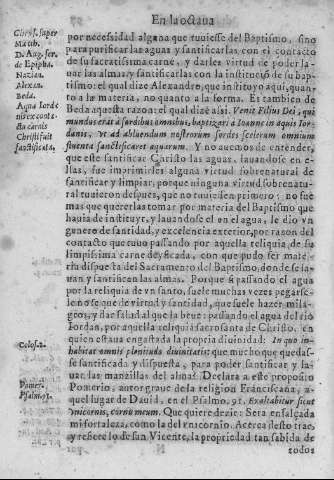 En la octaua
Chrys. super
Matth.
D. Aug. ser.
de Epipha.
Nazian.
Alexan.
Beda.
Aqua Iorde
nis ex conta
cta carnis
Christi fuit
sanctificata.
por necessidad alguna que tuuiesse del Baptismo, sino
para purificar las aguas y santificarlas con el contacto
de su sacratissima carne, y darles virtud de poder la-
uar las almas, y santificarlas con la institucion de su bap-
tismo: el qual dize Alexandro, que instituyo aqui, quan-
to a la materia, no quanto a la forma. Es tambien de
Beda aquesta razon: el qual dize assi. Venit Filius Dei, qui
mundus erat a sordibus omnibus, baptizari a Ioanne in aquis Ior-
danis, vt ad abluendum nostrorum sordes scelerum omnium
fluenta sanctificaret aquarum. Y no auemos de entender,
que este santificar Christo las aguas, lauandose en e-
llas, fue imprimirles alguna virtud sobrenatural de
santificar y limpiar, porque ninguna virtud sobrenatu-
ral tuuieron despues, que no tuuiessen primero: no fue
mas que quererlas tomar por materia del Baptismo que
hauia de instituyr, y lauandose el en el agua, le dio vn
genero de santidad, y excelencia exterior, por razon del
contacto que tuuo passando por aquella reliquia, de su
limpissima carne deyficada, con que pudo ser mate-
ria dispuesta del Sacramento del Baptismo, donde se la-
uan y santifican las almas. Porque si passando el agua
por la reliquia de vn santo, suele muchas vezes pegarse-
le no se que de virtud y santidad, que suele hazer mila-
gros, y dar salud al que la beue: passando el agua del rio
Iordan, por aquella reliquia sacrosanta de Christo, en
Colos. 2.
quien estaua engastada la propria diuinidad: In quo in-
habitat omnis plenitudo diuinitatis: que mucho que quedas-
se santificada y dispuesta, para poder santificar y la-
uar las manzillas del alma? Declara a este proposito
Pomer.
Psalm. 91.
Pomerio, autor graue de la religion Franciscana, a-
quel lugar de Dauid, en el Psalmo. 91. Exaltabitur sicut
vnicornis, cornu meum. Que quiere dezir: Sera ensalçada
mi fortaleza, como la del vnicornio. Acerca desto trae,
y refiere lo de san Vicente, la propriedad tan sabida de
todos